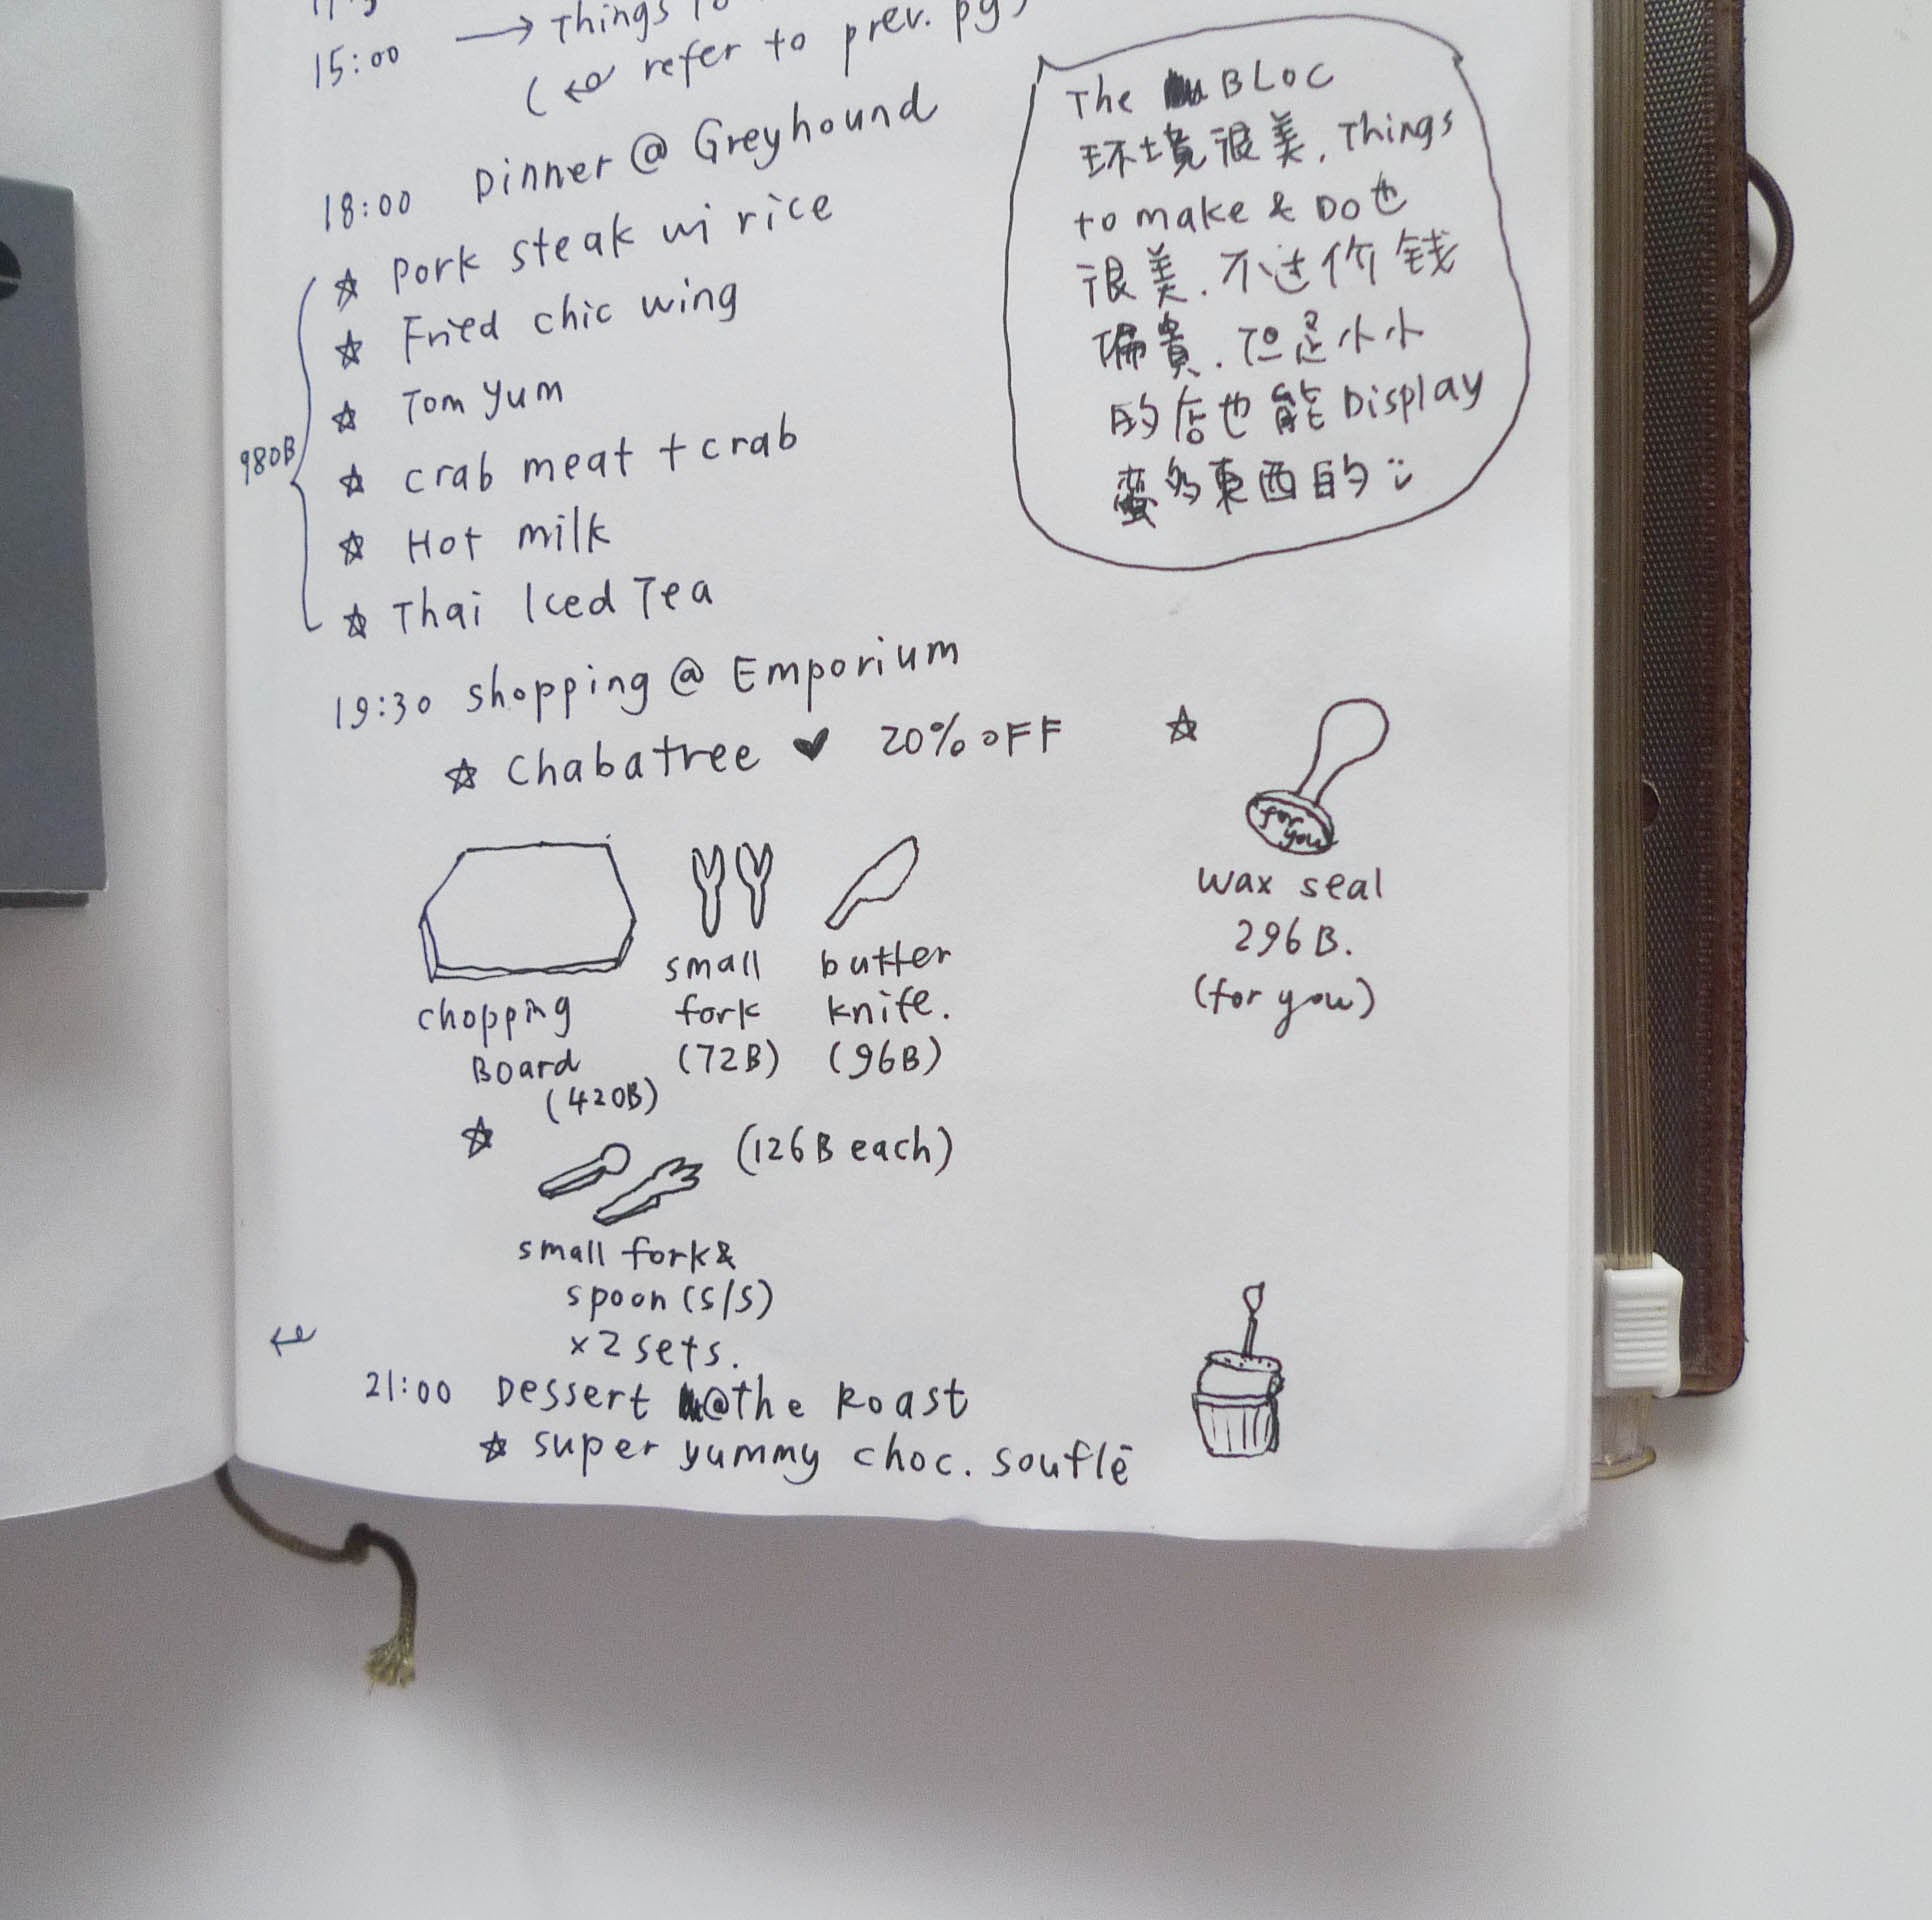 15:00 → Things to
(↩ refer to prev. pg)
18:00 Dinner @ Greyhound
980B
☆ Pork steak w/ rice
☆ Fried chic wing
☆ Tom Yum
☆ crab meat + crab
☆ Hot milk
☆ Thai Iced Tea
The BLOC
环境很美. Things
to make & Do 也
很美. 不过价钱
偏貴. 但是小小
的店也能 Display
蛮多東西的 :)
19:30 shopping @ Emporium
☆ Chabatree ♥ 20% OFF
chopping
Board
(420B)
small
fork
(72B)
butter
knife.
(96B)
☆
for
you
wax seal
296 B.
(for you)
☆ (126B each)
small fork &
spoon (S/S)
x 2 sets.
21:00 Dessert @ the Roast
☆ super yummy choc. souflē